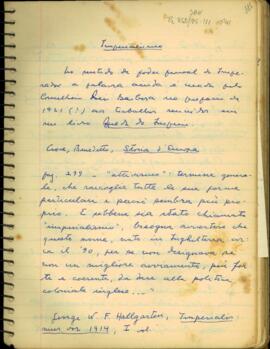 Imperialismo
No sentido de poder pessoal do Impe-
rador a palavra ainda é usada pelo
Conselheiro Rui Barbosa no prefácio de
1921 (?) aos trabalhos reunidos em
seu livro Queda do Império.
Croce, Benedetto, Storia d'Europa
pag. 299 - "attivismo": termine genera-
le, che raccoglie tutte le sue forme
particolari e perciò sembra più pro-
prio. E sebbene sia stato chiamato
"imperialismo", bisogna avvertire che
questo nome, nato in Inghilterra ver-
so il '90, per sé non designava se
non un migliore avviamento, più for-
te e coerente, da dare alla politica
coloniale inglese..."
George W. F. Hallgarten, Imperialis-
mus vor 1914, I vol.